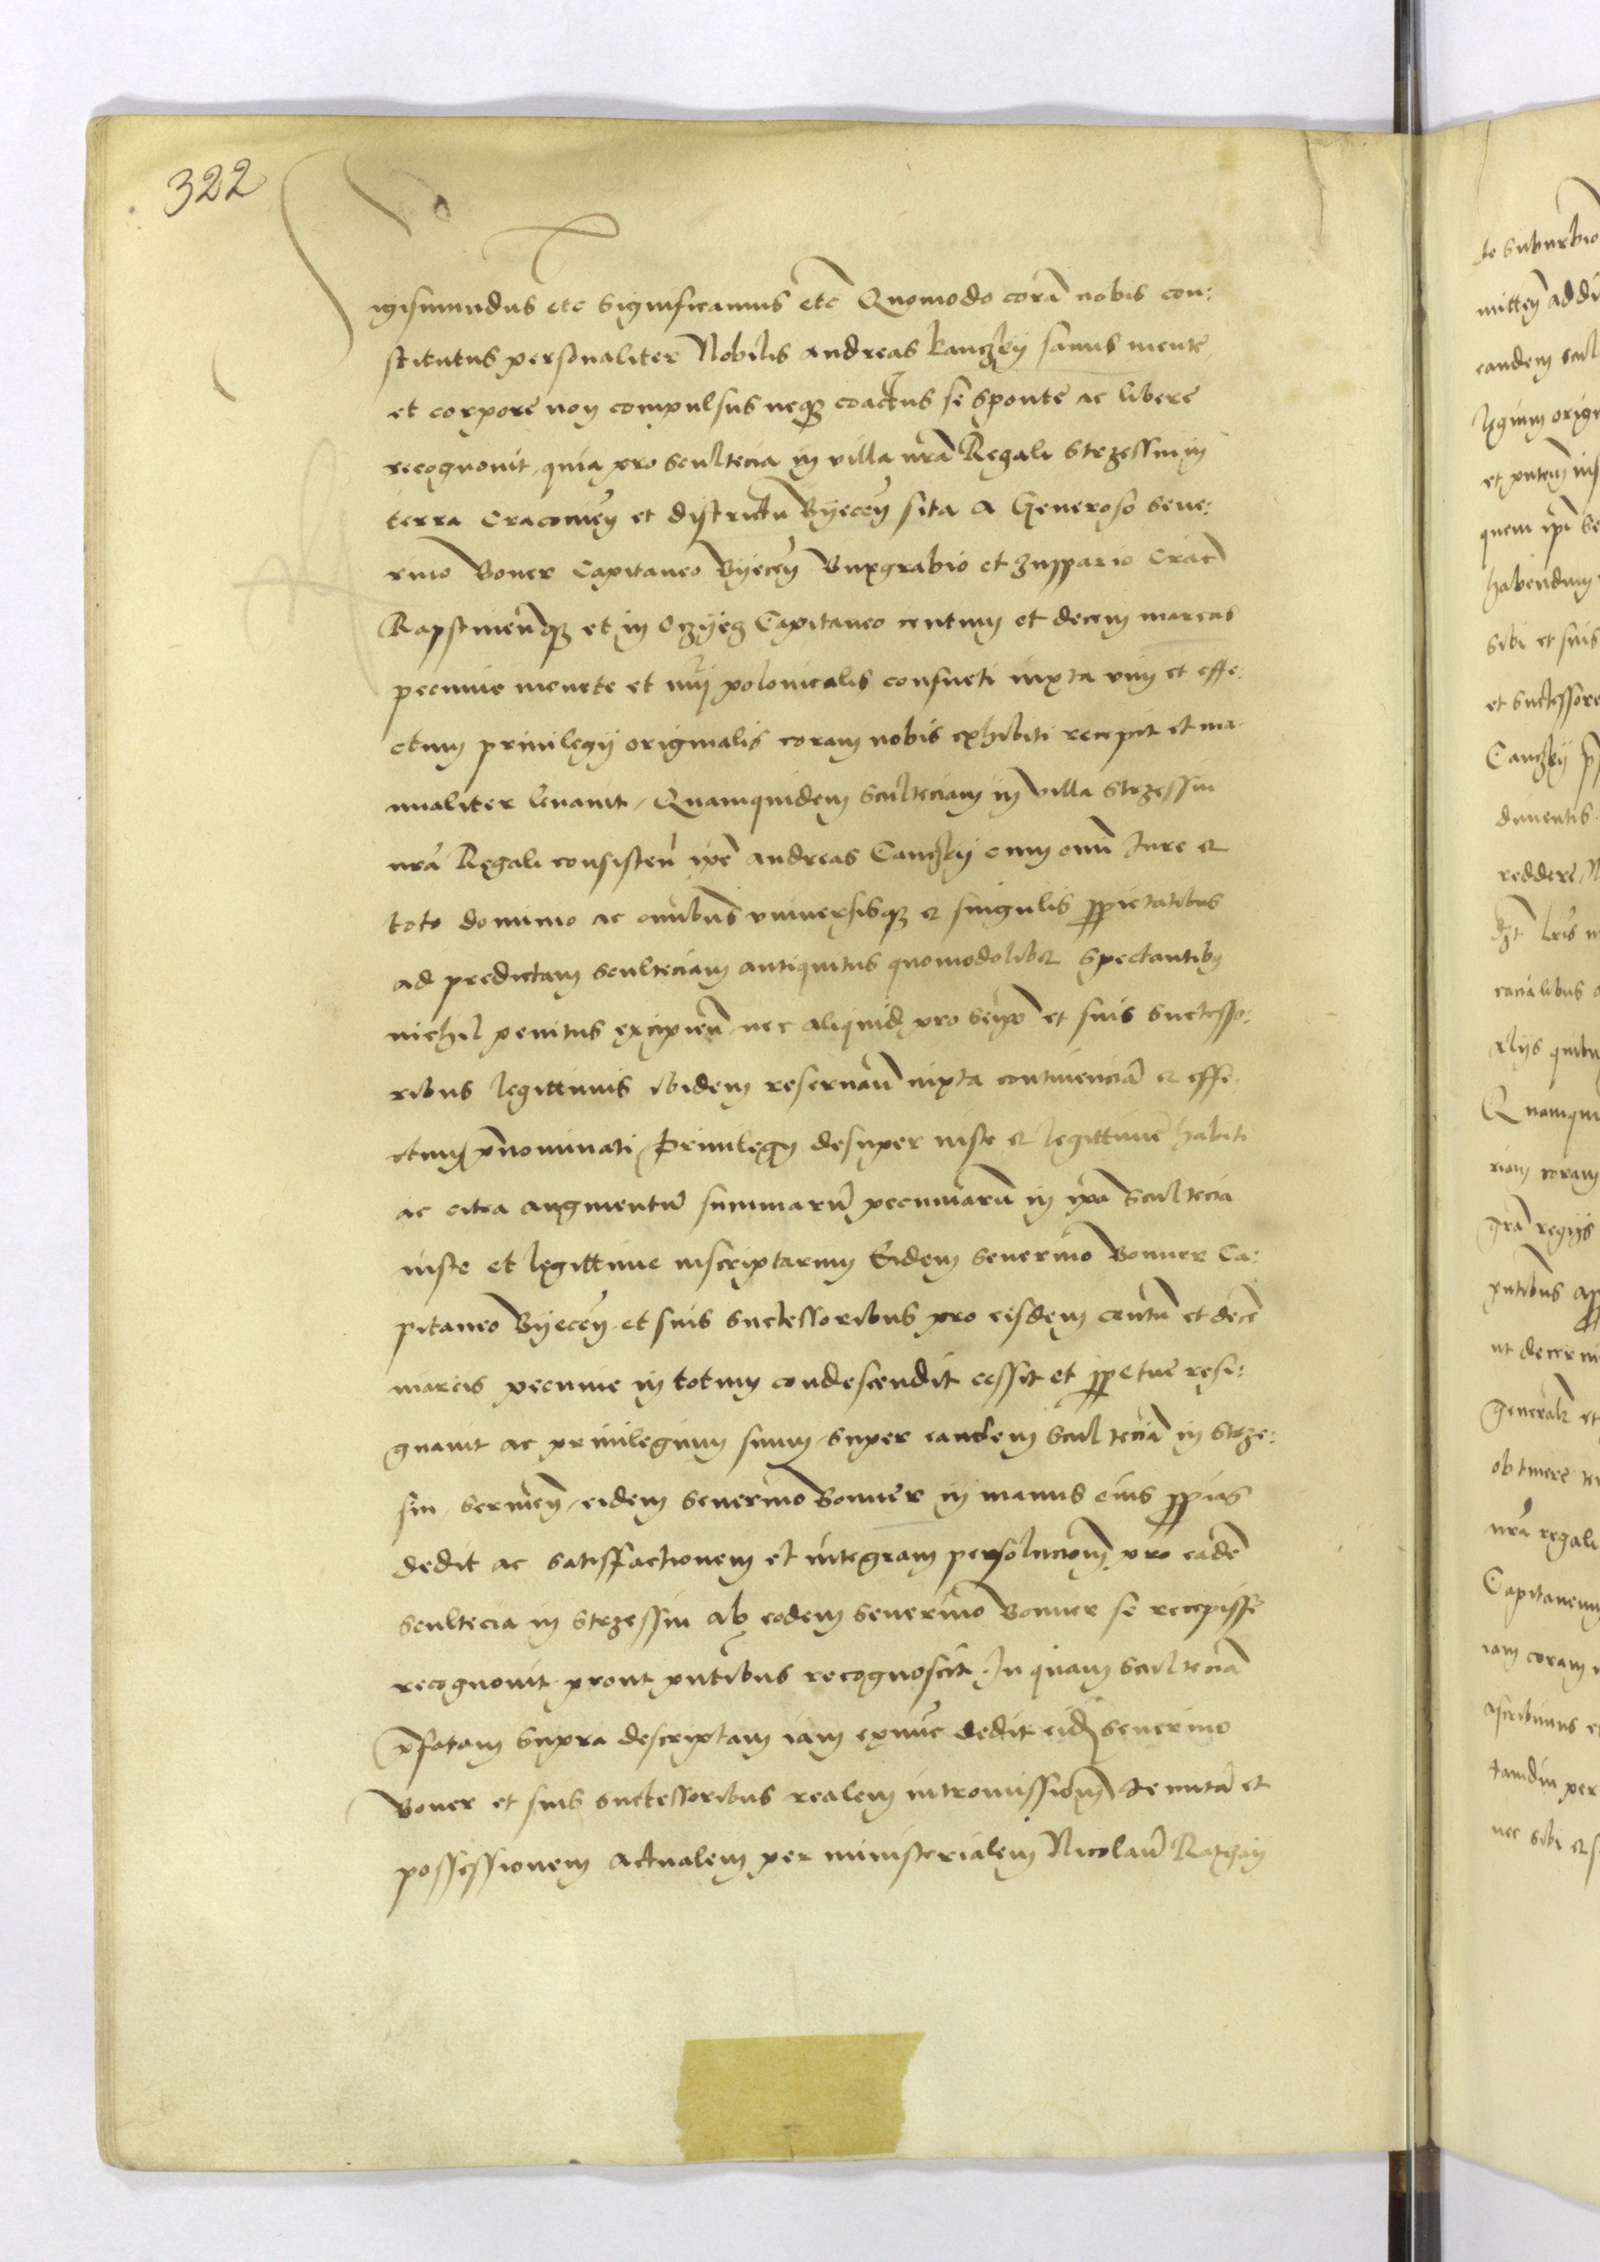 322
Sigismundus etc Significamus etc Quomodo corã nobis con:
stitutus personaliter Nobilis Andreas kanczky sanus mente
et corpore non compulsus neqz coactus se sponte ac libere
recognovit, quia pro scultecia in villa nrã Regali Strzessin in
terra Cracovień et districtu Byeceń sita a Generoso Seve:
rino Boner Capitaneo Byeceń Burgrabio et Zuppario Crac̃
Rapstineńqz et in Oczyecz Capitaneo centum et decem marcas
pecunie monete et nuĩ polonicalis consueti iuxta vim et effe:
ctum privilegii originalis coram nobis exhibiti recepit et ma
nualiter levavit, Quamquidem Sculteciam in villa Strzessin
nrã Regali consisteñ ip̃e Andreas Canczky cum omñ Iure et
toto dominio ac omĩbus universisqz et singulis ꝓprietatibus
ad predictam sculteciam antiquitus quomodolibet spectantibus
nichil penitus excipieñ nec aliquid pro seip̃o et suis Successo:
ribus legittimis ibidem reservañ iuxta continenciã et effe:
ctum p̃nominati Privilegy desuper iuste et legittime habiti
ac citra augmentũ summarũ pecuniarũ in ip̃a Scultecia
iuste et legittime inscriptarum Eidem Severino Bonner Ca:
pitaneo Byeceń et suis successoribus pro eisdem centũ et decẽ
marcis pecunie in totum condescendit cessit et ꝓpetue resi:
gnavit ac privilegium suum super eandem Sculteciã in Strze:
sin servieñ, eidem Severino Bonner in manus eius ꝓprias
dedit ac satisfactionem et integram persolucionẽ pro eadẽ
scultecia in Strzessin ab eodem Severino Bonner se recepisse
recognovit prout pñtibus recognoscit. In quam Scultecia͂
p̃fatam supra descriptam iam exnũc dedit eid̃ Severino
Boner et suis successoribus realem intromissionẽ tenutã et
possessionem actualem per ministerialem Nicolaũ
de suburbio
mitteñ ad
eandem scul
legium orig
et pñtem
quem ip̃i Se
habendum
sibi et suis
et successore
Canczky
reddere
lrĩs
alys quibu
Quamqui
riam coram
grã regys
pñtibus
ut decerni
et
obtinere
nrã regali
Capitaneum
iam coram
ascribimus et
tamdiu per
nec sibi et